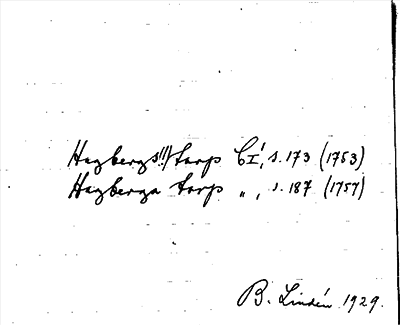 Hagbergs(!!) torp CI, s. 173 (1753)
Hagberga torp „ , s. 187 (1757)
B. Lindén 1929.